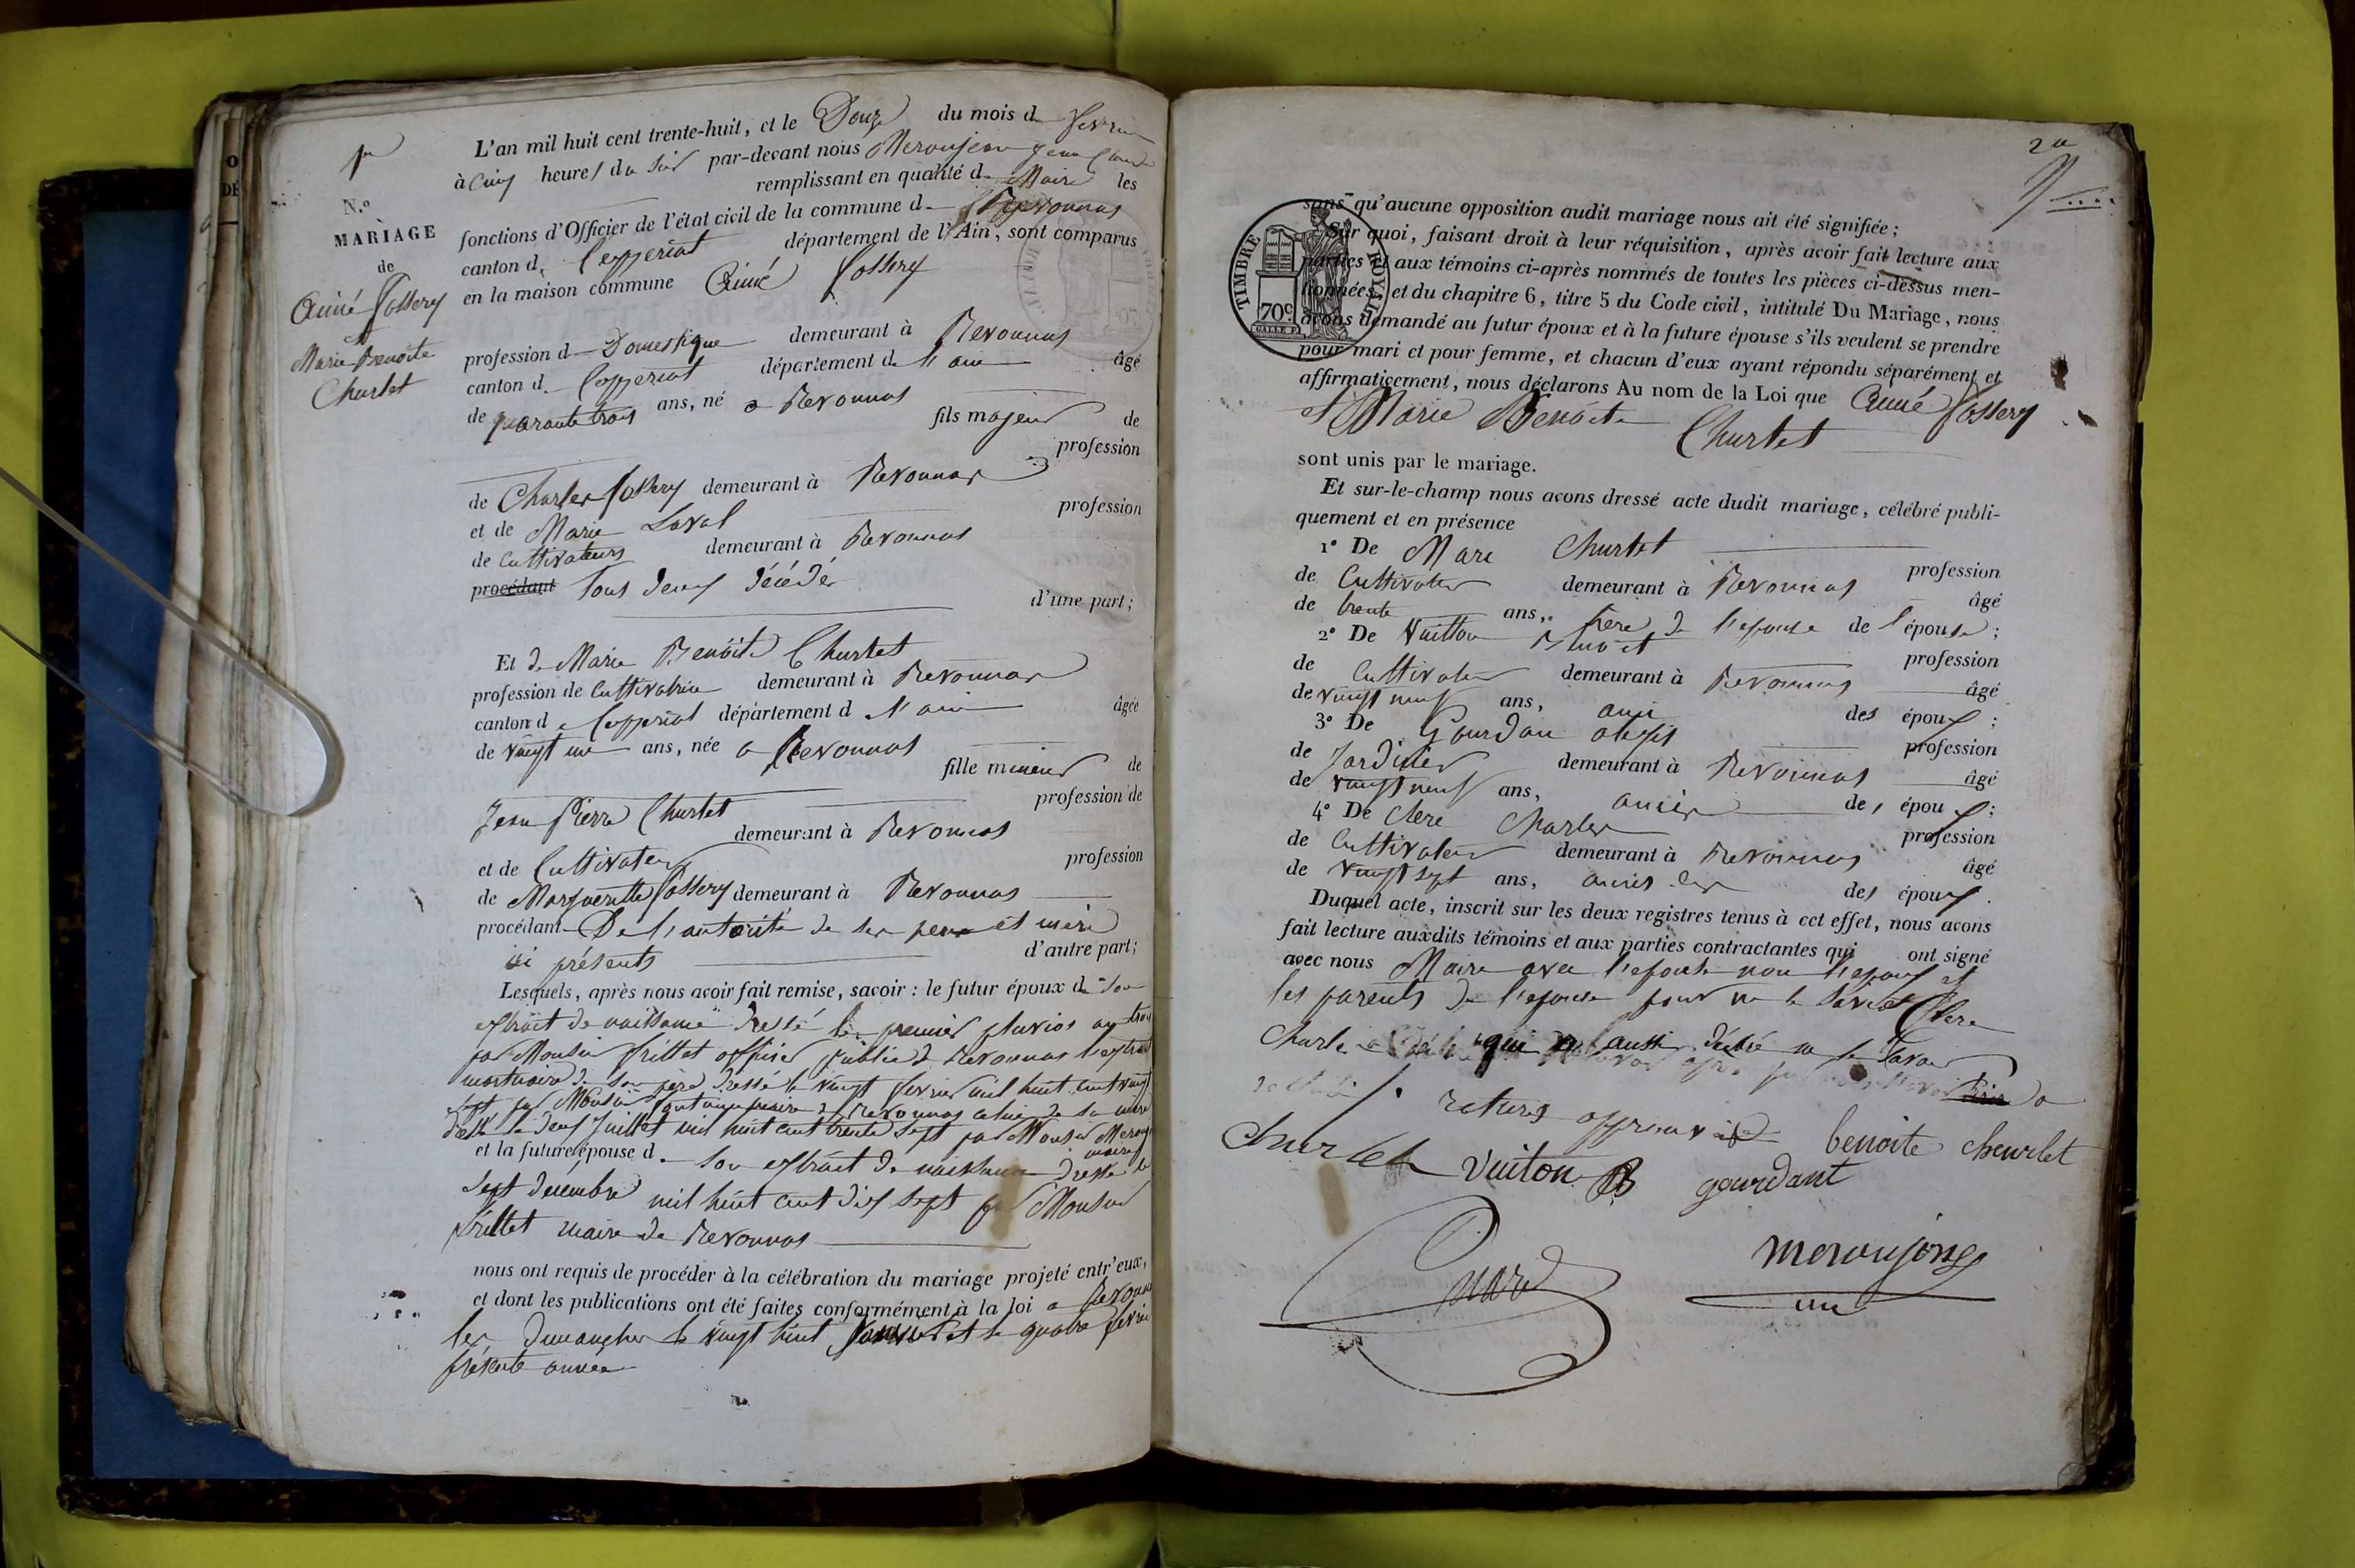 1er
N.º
MARIAGE
de
Aimé Fossery
et
Marie Benoite
Churlet
L'an mil huit cent trente-huit, et le Douze du mois de fevrier
à cinq heures du soir par-devant nous Meroujean Jean Claude
remplissant en qualité de Maire les
fonctions d'Officier de l'état civil de la commune de Revonnas
canton de Ceyzeriat département de l'Ain, sont comparus
en la maison commune Aimé Fossery
profession de Domestique demeurant à Revonnas
canton de Ceyzeriat département de l'ain âgé
de quarante trois ans, né a Revonnas
fils majeur de
profession
de Charles Fossery demeurant à Revonnas
et de Marie Laval profession
de Cultivateurs demeurant à Revonnas
procédant tous deux décédés
d'une part;
Et de Marie Benoite Churlet
profession de Cultivatrice demeurant à Revonnas
canton de Ceyzeriat département de l'ain âgée
de vingt un ans, née a Revonnas
fille mineur de
Jean Pierre Churlet profession de
demeurant à Revonnas
et de Cultivateur profession
de Margueritte Fossery demeurant à Revonnas
procédant De l'autorité de ses pere et mère
ici présents d'autre part;
Lesquels, après nous avoir fait remise, savoir: le futur époux de son
extrait de naissance dressé le premier pluvios an trois
par Monsieur frillet officier public de Revonnas l'extrait
mortuaire de son père dressé le vingt fevrier mil huit cent vingt
sept par Monsieur maire de Revonnas celui de sa mère
le deux Juillet mil huit cent trente sept par Monsieur
maire
et la future épouse de son extrait de naissance dressé le
sept decembre mil huit cent dix sept par Monsieur
frillet maire de Revonnas
nous ont requis de procéder à la célébration du mariage projeté entr'eux,
et dont les publications ont été faites conformément à la loi a Revonnas
les dimanches le vingt huit Janvier et le quatre fevrier
présente année
TIMBRE ROYAL
70c
sans qu'aucune opposition audit mariage nous ait été signifiée;
Sur quoi, faisant droit à leur réquisition, après avoir fait lecture aux
parties et aux témoins ci-après nommés de toutes les pièces ci-dessus men-
tionnées, et du chapitre 6, titre 5 du Code civil, intitulé Du Mariage, nous
avons demandé au futur époux et à la future épouse s'ils veulent se prendre
pour mari et pour femme, et chacun d'eux ayant répondu séparément et
affirmativement, nous déclarons Au nom de la Loi que Aimé Fossery
et Marie Benoite Churlet
sont unis par le mariage.
Et sur-le-champ nous avons dressé acte dudit mariage, célébré publi-
quement et en présence
1º De Marc Churlet profession
de Cultivateur demeurant à Revonnas âgé
de trente ans, frere de l'epouse de l'épouse;
2º De Vuitton profession
de Cultivateur demeurant à Revonnas âgé
de vingt neuf ans, ami des époux;
3º De Gourdan alexis profession
de Jardinier demeurant à Revonnas âgé
de vingt neuf ans, des époux;
4º De Clere Charles profession
de Cultivateur demeurant à Revonnas âgé
de vingt sept ans, des époux.
Duquel acte, inscrit sur les deux registres tenus à cet effet, nous avons
fait lecture auxdits témoins et aux parties contractantes qui ont signé
avec nous Maire avec l'epouse non l'epoux et
les parents de l'epouse pour ne le savoir Clere
Charles qui aussi déclré ne le savoir
approuvé
benoite cheurlet
churlet vuiton B gourdant
meroujong